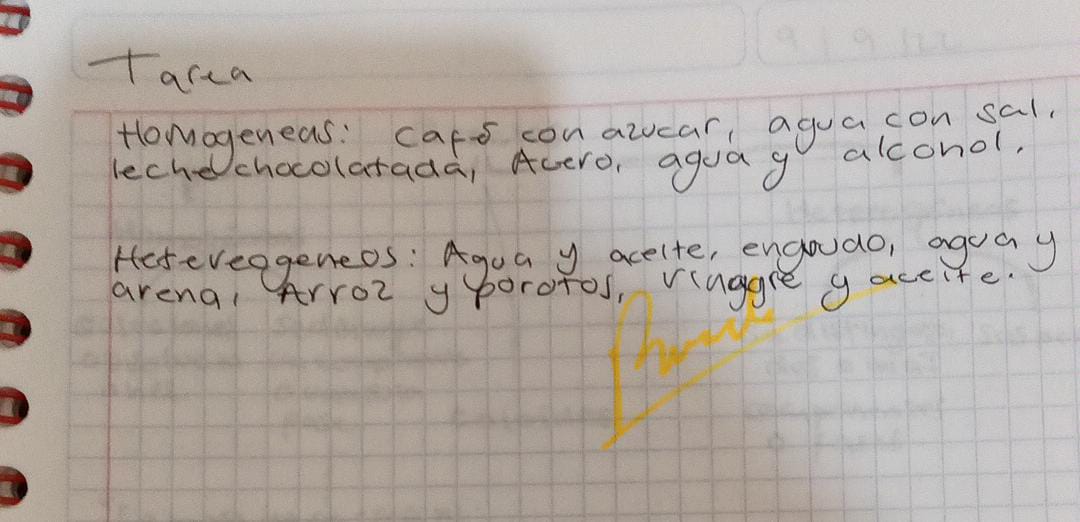 9/9/22
Tarea
Homogeneas: café con azucar, agua con sal,
leche chocolatada, Acero, agua y alcohol.
Hetereogeneos: Agua y aceite, engrudo, agua y
arena, Arroz y porotos, vinagre y aceite.